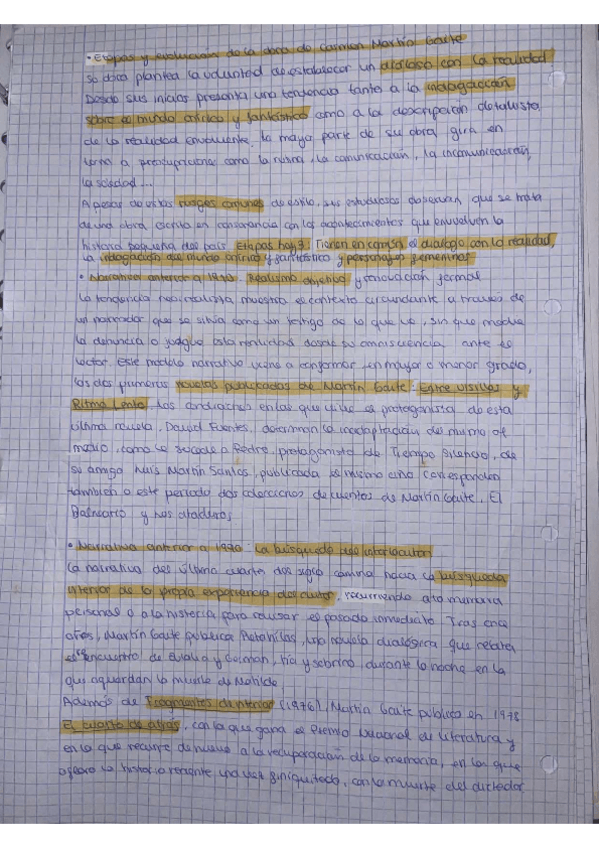 • Etapas y evolución de la obra de Carmen Martín Gaite
Su obra plantea la voluntad de establecer un dialogo con la realidad
Desde sus inicios presenta una tendencia tanto a la indagación
sobre el mundo onírico y fantástico como a la descripción detallista
de la realidad envolvente, la mayor parte de su obra gira en
torno a preocupaciones como la rutina, la comunicación, la incomunicación,
la soledad...
A pesar de estos rasgos comunes de estilo, sus estudiosos observan que se trata
de una obra escrita en consonancia con los acontecimientos que envuelven la
historia pequeña del país. Etapas hay 3. Tienen en común el dialogo con la realidad,
la indagación del mundo onírico y fantástico y personajes femeninos
• Narrativa anterior a 1970. Realismo objetivo y renovación formal
La tendencia neorrealista muestra el contexto circundante a través de
un narrador que se sitúa como un testigo de lo que ve, sin que medie
la denuncia o juzgue esta realidad desde su consciencia ante el
lector. Este modelo narrativo viene a conformar en mayor o menor grado,
las dos primeras novelas publicadas de Martín Gaite: Entre visillos y
Ritmo lento. Las condiciones en las que vive el protagonista de esta
última novela, David Fuentes, determinan la inadaptación del mismo al
medio, como le sucede a Pedro, protagonista de Tiempo Silencio, de
su amigo Luis Martín Santos, publicada el mismo año. Corresponden
también a este periodo dos colecciones de cuentos de Martín Gaite, El
Balneario y Las ataduras
• Narrativa anterior a 1970: La búsqueda del interlocutor
La narrativa del último cuarto del siglo camina hacia la búsqueda
interior de la propia experiencia del autor, recurriendo a la memoria
personal o a la histeria para revisar el pasado inmediato Tras once
años, Martín Gaite publica Retahílas, una novela dialógica que relata
el encuentro de Eulalia y Germán, tía y sobrino, durante la noche en la
que aguardan la muerte de Matilde
Además de Fragmentos de interior (1976), Martín Gaite publica en 1978
El cuarto de atrás, con la que gana el Premio Nacional de Literatura y
en la que recurre de nuevo a la recuperación de la memoria, en la que
aflora la historia reciente una vez finiquitado, con la muerte del dictador